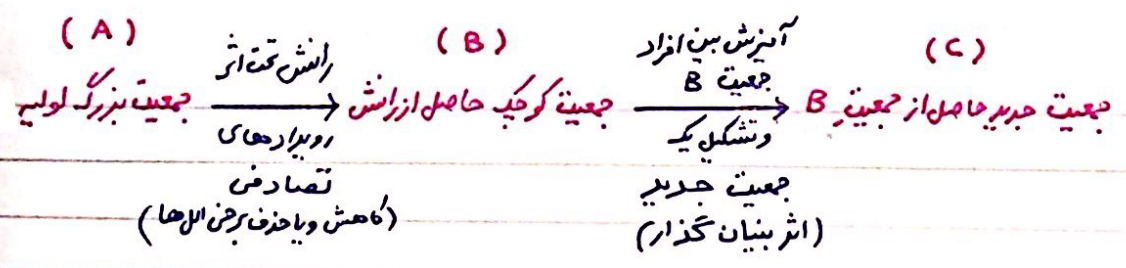 (A)
جمعیت بزرگ اولیه
رانش تحت اثر
رویدادهای
تصادفی
(کاهش و یا حذف برخی اللها)
(B)
جمعیت کوچک حاصل از رانش
آمیزش بین افراد
جمعیت B
و تشکیل یک
جمعیت جدید
(اثر بنیان گذار)
(C)
جمعیت جدید حاصل از جمعیت B